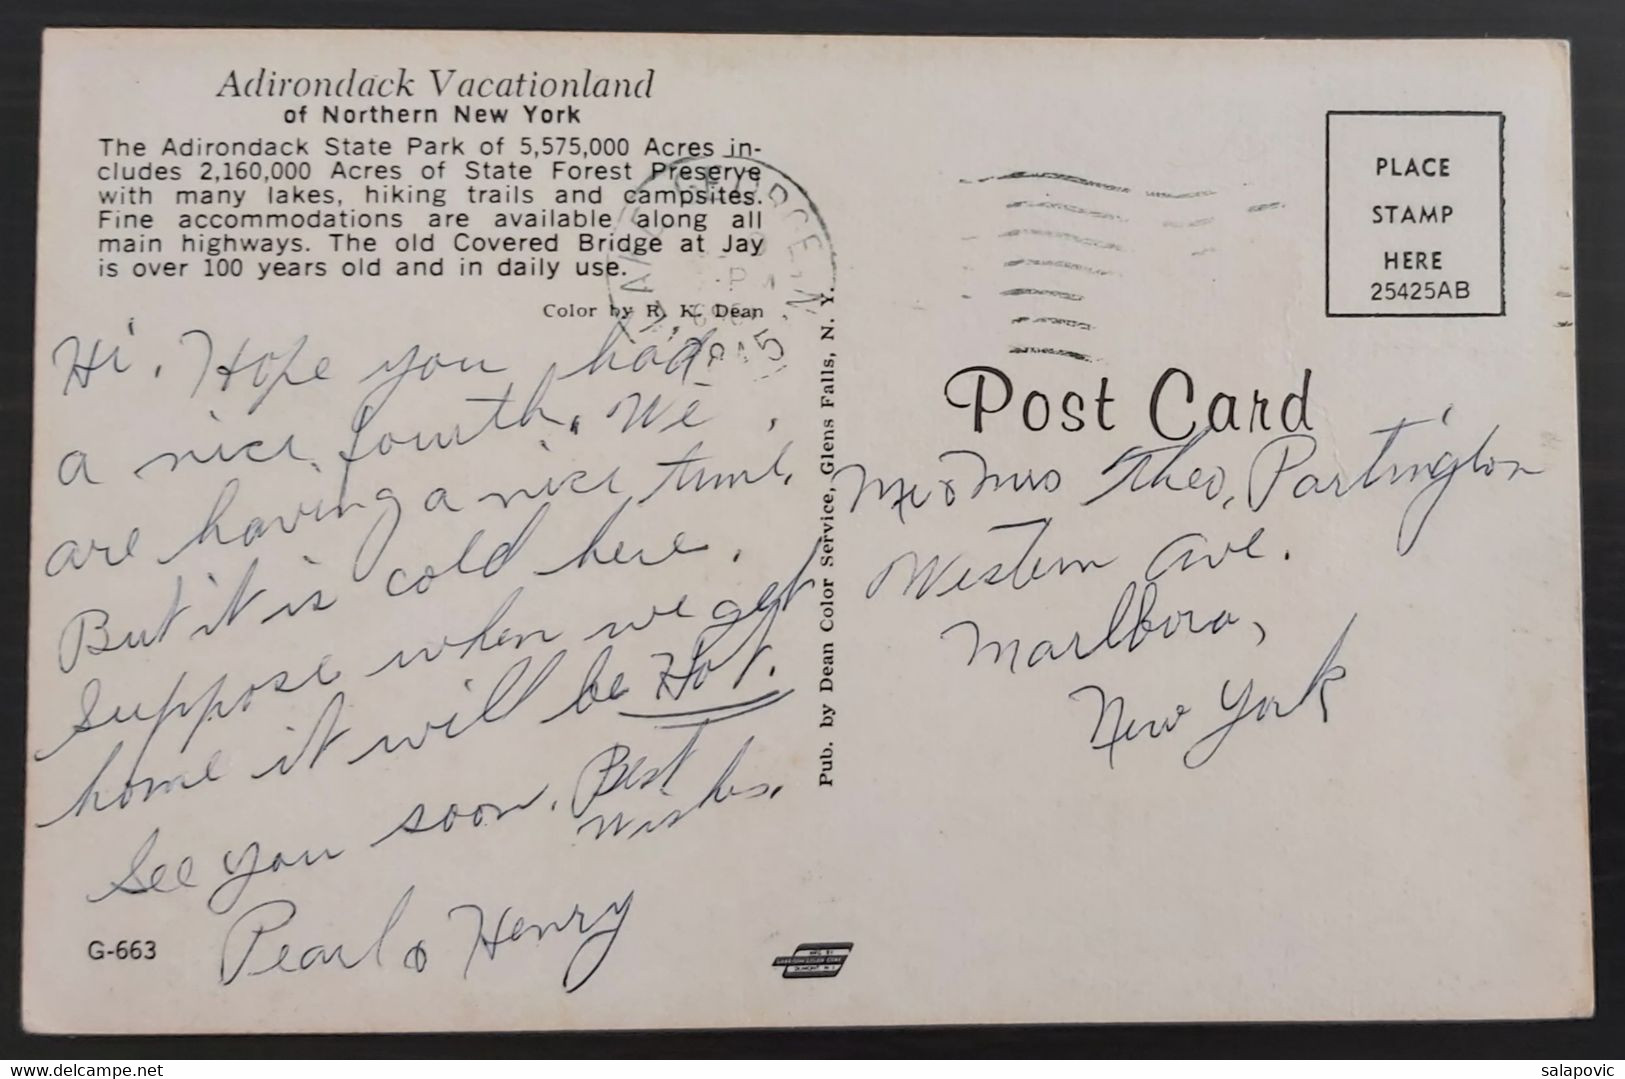 Adirondack Vacationland
of Northern New York
The Adirondack State Park of 5,575,000 Acres in-
cludes 2,160,000 Acres of State Forest Preserve
with many lakes, hiking trails and campsites.
Fine accommodations are available along all
main highways. The old Covered Bridge at Jay
is over 100 years old and in daily use.
Color by R. K. Dean
Hi. Hope you had
a nice fourth. We
are having a nice time.
But it is cold here.
Suppose when we get
home it will be Hot.
See you soon. Best
Wishes.
Pearl & Henry
G-663
LAKE GEORGE, N.Y.
PM
12845
Pub. by Dean Color Service, Glens Falls, N. Y.
PLACE
STAMP
HERE
25425AB
Post Card
Mr & Mrs Theo, Partington
Western Ave.
Marlboro,
New York
delcampe.net
salapovic